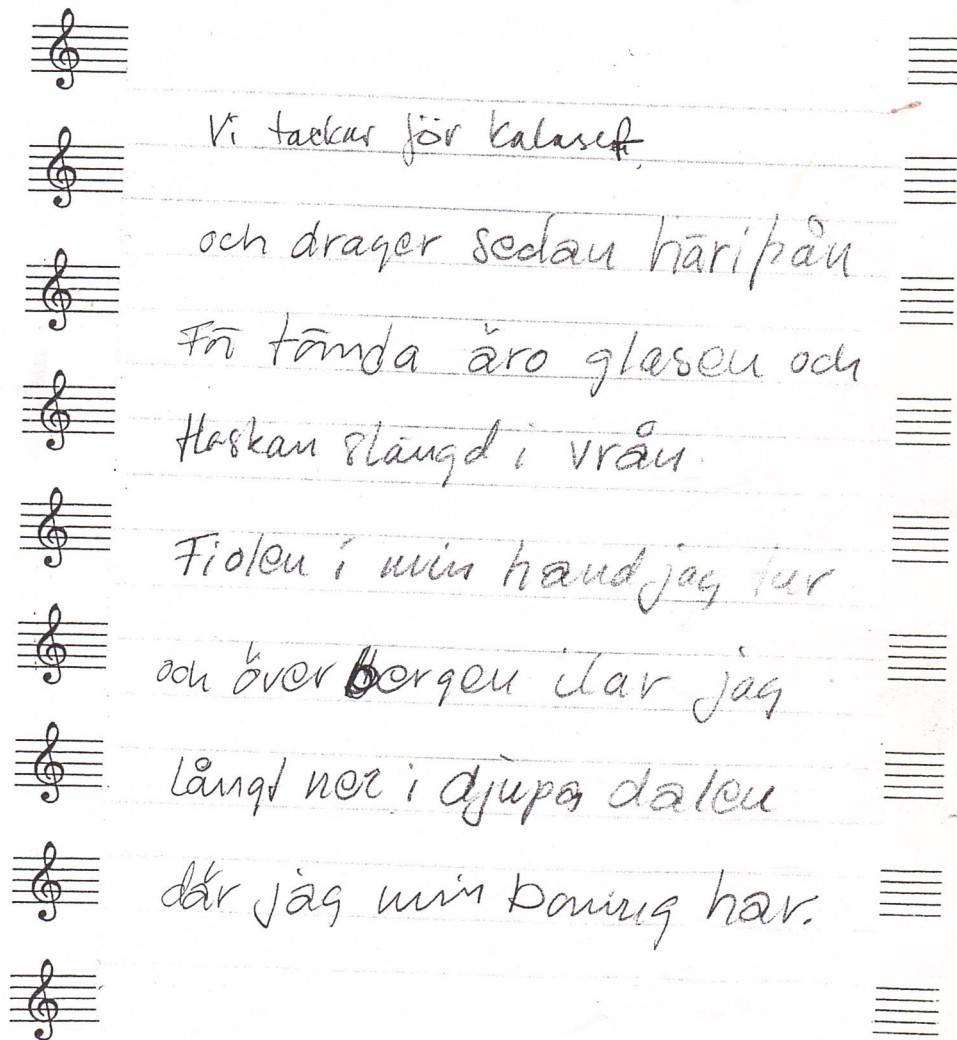 Vi tackar för kalaset
och drager sedan härifrån
tömda äro glasen och
flaskan slängd i vrån.
Fiolen i min hand jag tar
och över bergen ilar jag
långt ner i djupa dalen
där jag min boning har.